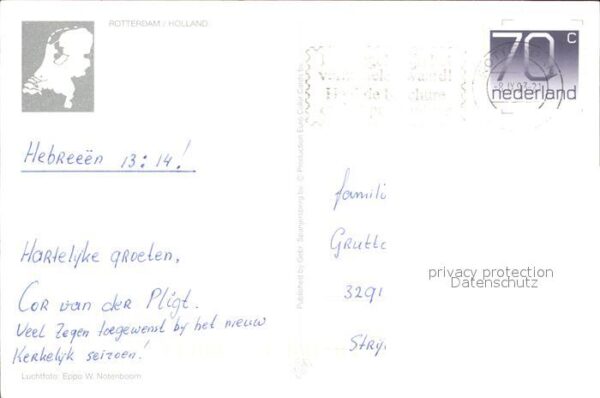 ROTTERDAM / HOLLAND
70 c
nederland
Hebreeën 13:14!
Hartelijke groeten,
Cor van der Pligt.
Veel Zegen toegewenst bij het nieuw
Kerkelijk seizoen!
Luchtfoto: Eppo W. Notenboom
Published by Gebr. Spanjersberg bv. © Production Euro Color Cards bv.
famili
Grutt
3291
Strij
privacy protection
Datenschutz